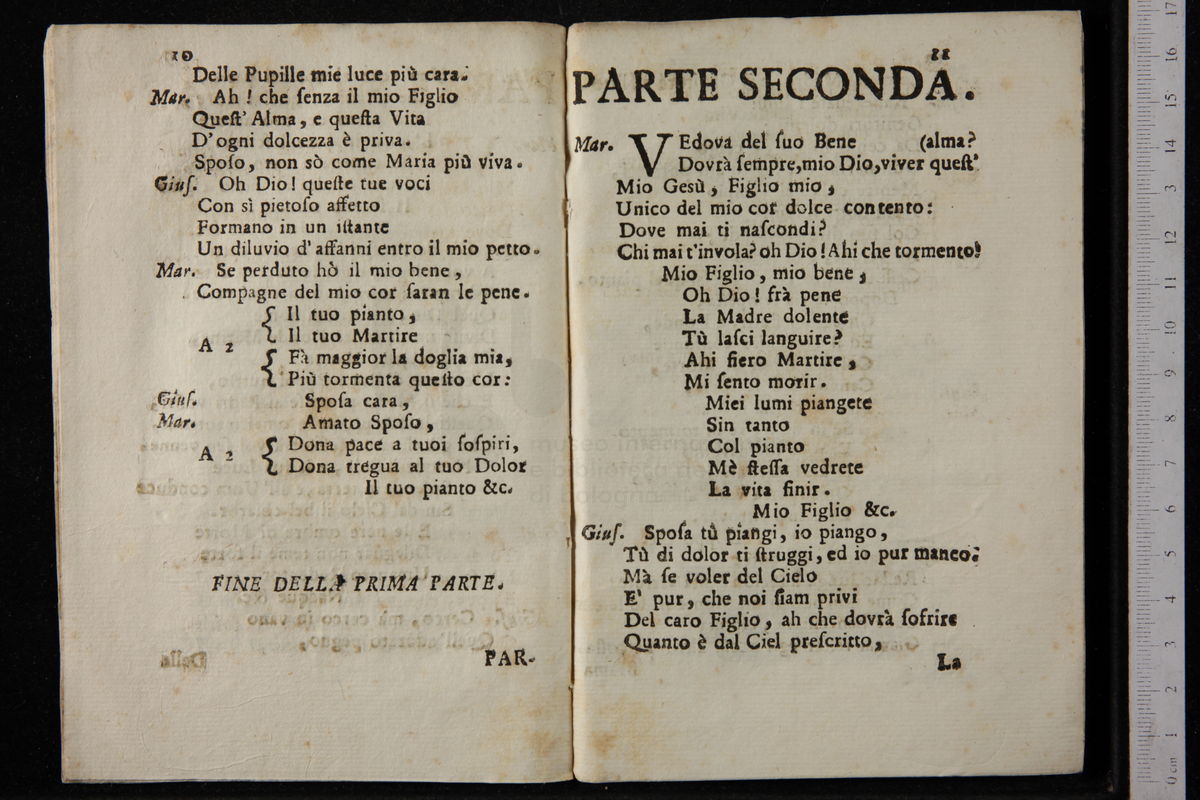 10
Delle Pupille mie luce più cara.
Mar. Ah ! che ſenza il mio Figlio
Queſt' Alma, e queſta Vita
D'ogni dolcezza è priva.
Spoſo, non sò come Maria più viva.
Giuſ. Oh Dio! queſte tue voci
Con sì pietoſo affetto
Formano in un iſtante
Un diluvio d'affanni entro il mio petto.
Mar. Se perduto hò il mio bene,
Compagne del mio cor ſaran le pene.
{ Il tuo pianto,
A 2
{ Il tuo Martire
{ Fà maggior la doglia mia,
{ Più tormenta queſto cor:
Giuſ. Spoſa cara,
Mar. Amato Spoſo,
A 2
{ Dona pace a tuoi ſoſpiri,
{ Dona tregua al tuo Dolor
Il tuo pianto &c.
FINE DELLA PRIMA PARTE.
PAR-
11
PARTE SECONDA.
Mar. VEdova del ſuo Bene (alma?
Dovrà ſempre,mio Dio,viver queſt'
Mio Gesù, Figlio mio,
Unico del mio cor dolce contento:
Dove mai ti naſcondi?
Chi mai t'invola? oh Dio! Ahi che tormento!
Mio Figlio, mio bene,
Oh Dio! frà pene
La Madre dolente
Tù laſci languire?
Ahi fiero Martire,
Mi ſento morir.
Miei lumi piangete
Sin tanto
Col pianto
Mè ſteſſa vedrete
La vita finir.
Mio Figlio &c.
Giuſ. Spoſa tù piangi, io piango,
Tù di dolor ti ſtruggi, ed io pur manco:
Mà ſe voler del Cielo
E' pur, che noi ſiam privi
Del caro Figlio, ah che dovrà ſofrire
Quanto è dal Ciel preſcritto,
La